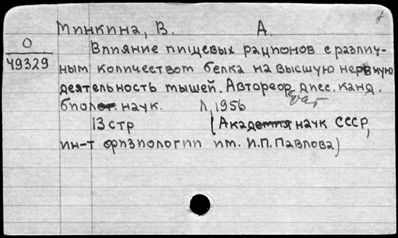 Минкина, В. А.
О
49329
Влияние пищевых рационов с различ-
ным количеством белка на высшую нервную
деятельность мышей. Автореф. дисс. канд.
биол. наук. Л, 1956
13 стр (Академия наук СССР,
ин-т физиологии им. И.П. Павлова)